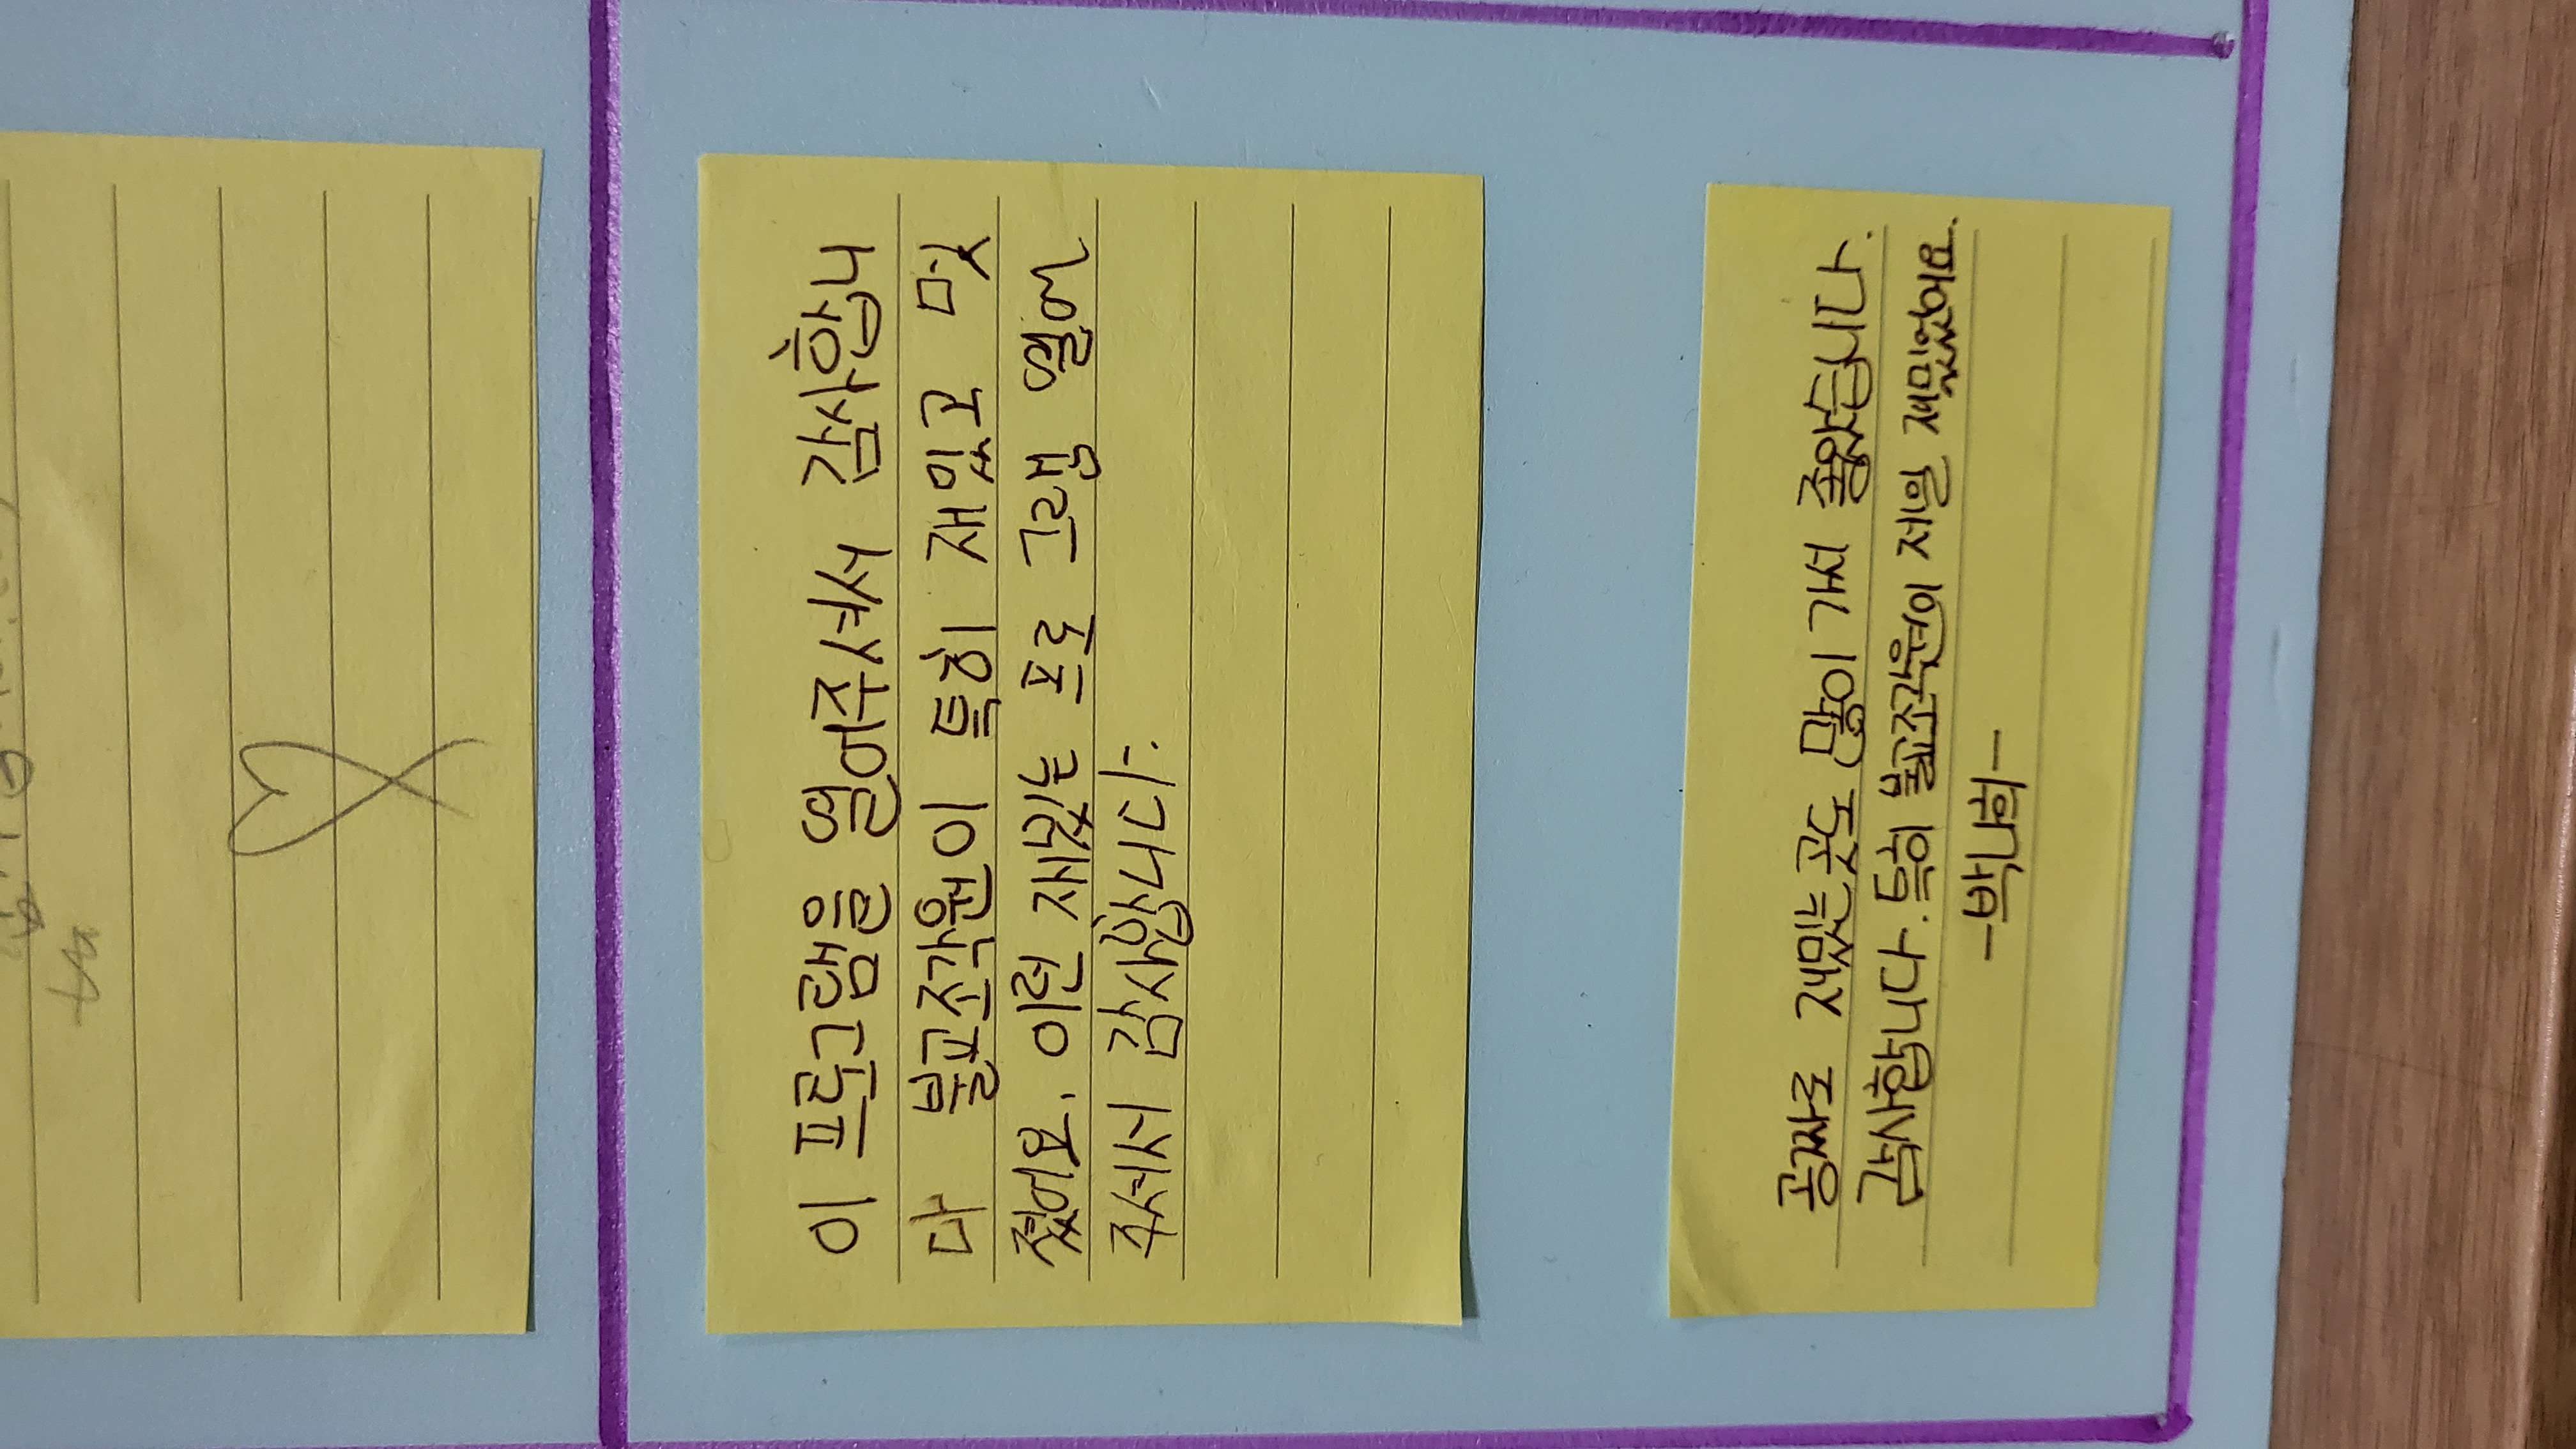 이 프로그램을 열어주셔서 감사합니
다 불교조각원이 특히 재있고 멋
졌어요. 이런 재밌는 프로그램 열어
주셔서 감사합니다.
공짜로 재밌는곳도 많이 가서 좋았습니다.
감사합니다. 특히 불교조각원이 제일 재밌었어요.